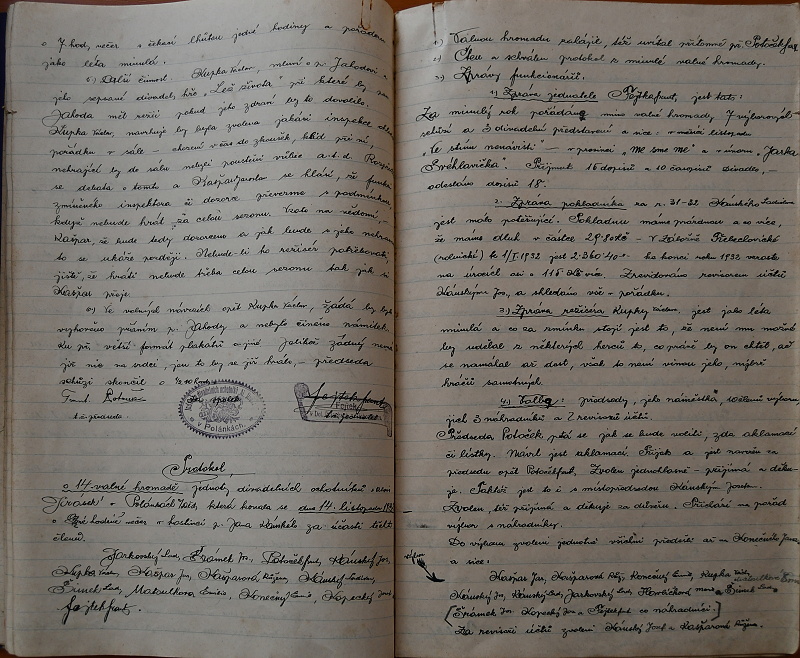 o 7. hod. večer s čekací lhůtou jedné hodiny a pořadem
jako léta minulá.
b) Další činnost. Kupka Václav, mluví o p. Jahodovi a
jeho sepsané divadel. hře „Leš života" při které by pan
Jahoda měl režii pokud jeho zdraví by to dovolilo.
Kupka Václav, navrhuje by byla zvolena jakási inspekce
pořádku v sále – chození včas do zkoušek, klid při ní,
nehrající by do sálu nebyli pouštěni vůbec a.t.d.
se debata o tomto a Kašpar se hlásí, že funkci
zmíněného inspektora či dozorce převezme s podmínkou
když nebude hrát za celou sezonu. Vzato na vědomí,
Kašpar, že bude tedy dozorcem a jak bude s jeho
to se ukáže později. Nebude-li ho režisér potřebovati,
jistě, že hráti nebude třeba celou sezonu tak jak si
Kašpar přeje.
c) Ve volných návrzích opět Kupka Václav, žádá by bylo
vyhověno přáním p. Jahody a nebylo činěno námitek.
Ku při větší formát plakátů a jiné. Jelikož žádný nemá
již nic na srdci, jsou to by se již hrálo, předseda
schůzi skončil o ½10 hod.
v Polánkách.
Protokol
o 14. valné hromadě jednoty divadelních ochotníků
Jirásek v Polánkách, která konala se dne 14. listopadu
večer v hostinci p. Jana Hanského za účasti těchto
členů.
Jarkovský Lad., Šrámek Jos., Potoček Fant., Hánský Jos.,
Kupka Václ., Kašpar Jos., Kašparová Růžena, Hánský Ladislav,
Šimek Lad., Matoulková Emilie, Konečný Emil, Kopecký Jos.
Fojtek Fant.
1) Valnou hromadu zahájil, též uvítal přítomné př. Potoček Fant.
2) Čten a schválen protokol z minulé valné hromady.
3) Zprávy funkcionářů.
1) Zpráva jednatele Fojtka Fant., jest tato:
Za minulý rok pořádáno mimo valné hromady, 7 výborových
schůzí a 3 divadelní představení a sice: v měsíci listopadu
„Ve stínu nenávisti" – v prosinci „Me sme me" a v únoru „Jarka
Švehlavička". Přijmuto 16 dopisů a 10 časopisů Divadlo, –
odesláno dopisů 18.
2. Zpráva pokladníka za r. 31-32 Hánského Ladislava
jest málo potěšující. Pokladnu máme prázdnou a co více,
že máme dluh v částce
k 1/I 1932 jest 2.360·40 – ke konci roku 1932 vzroste
na úrocích asi o 116 Kč více. Zrevidováno revisorem účtů
Hánským Jos., a shledáno vše v pořádku.
3) Zpráva režiséra Kupky Václava. jest jako léta
minulá a co za zmínku stojí jest to, že není mu možno
by udělal z některých herců to, co právě by on chtěl, ač
se namáhal až dost, však to není vinou jeho, nýbrž
hráčů samotných.
4) Volba: předsedy, jeho náměstka, 10 členů výboru,
jich 3 náhradníků a 2 revisorů účtů.
Předseda, Potoček ptá se jak se bude voliti, zda aklamací
či lístky. Návrh jest aklamací. Přijat a jest navržen za
předsedu opět Potoček Fant. Zvolen jednohlasně – přijímá a děku-
je. Taktéž jest to i s místopředsedou Hánským Josefem.
Zvolen, též přijímá a děkuje za důvěru. Přichází na pořad
výbor s náhradníky.
Do výboru zvoleni jednotně všichni předešlí až na Konečného
a sice:
Kašpar Jos., Kašparová Růž., Konečný Emil, Kupka Václ.
Hánský Jos., Hánský Lad., Jarkovský Lad., Havlíčková Marie, Šimek Lad.
[Šrámek Jos. Kopecký Jos. a Fojtek Fant. co náhradníci.]
Za revisory účtů zvoleni Hánský Josef a Kašparová Růžena.